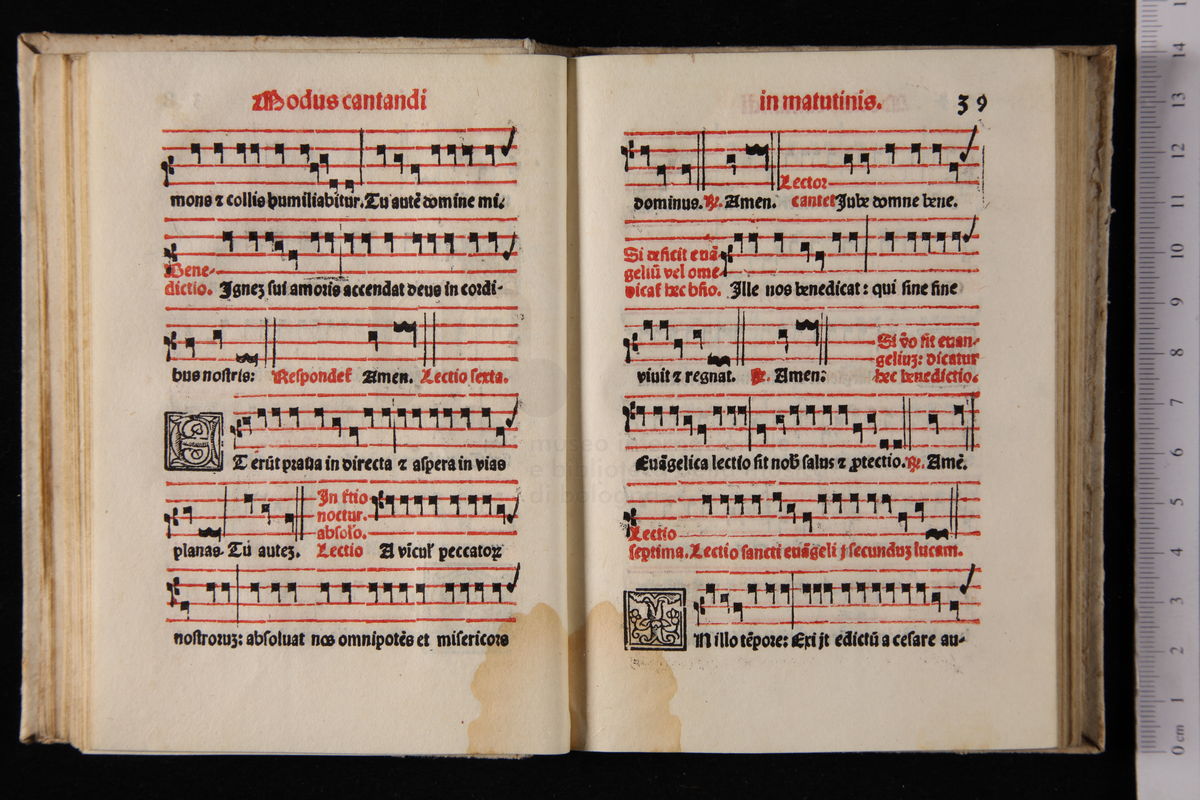 Modus cantandi
mons ⁊ collis humiliabitur. Tu autẽ domine mi.
Bene-
dictio. Ignez sui amoris accendat deus in cordi-
bus nostris: Respondeť Amen. Lectio sexta.
ET erũt praua in directa ⁊ aspera in vias
planas. Tu autez.
In
noctur.
absolo.
Lectio A vicuľ peccatoꝝ
nostroruz: absoluat nos omnipotẽs et misericors
in matutinis. 39
dominus. ℟. Amen.
Lector
cantet Jube domne bene.
Si deficit euã
geliũ vel ome
dicať hec bño. Ille nos benedicat: qui sine fine
viuit ⁊ regnat. ℟. Amen:
Si ṽo sit euan-
geliuz: dicatur
hec benedictio.
Euãgelica lectio sit nob̃ salus ⁊ ꝓtectio. ℟. Amẽ.
Lectio
septima. Lectio sancti euãgeli j secunduz lucam.
IN illo tẽpore: Exi jt edictũ a cesare au-
museo
e biblioteca
di bologna
14
13
12
11
10
9
8
7
6
5
4
3
2
1
0 cm